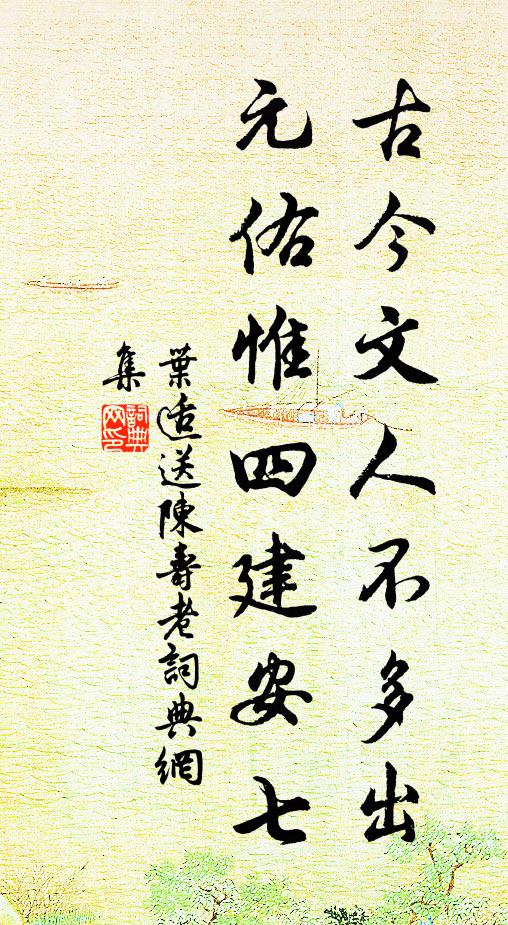 古今文人不多出
元佑惟四建安七
葉适送陳壽老詞典網
集
詞典網印